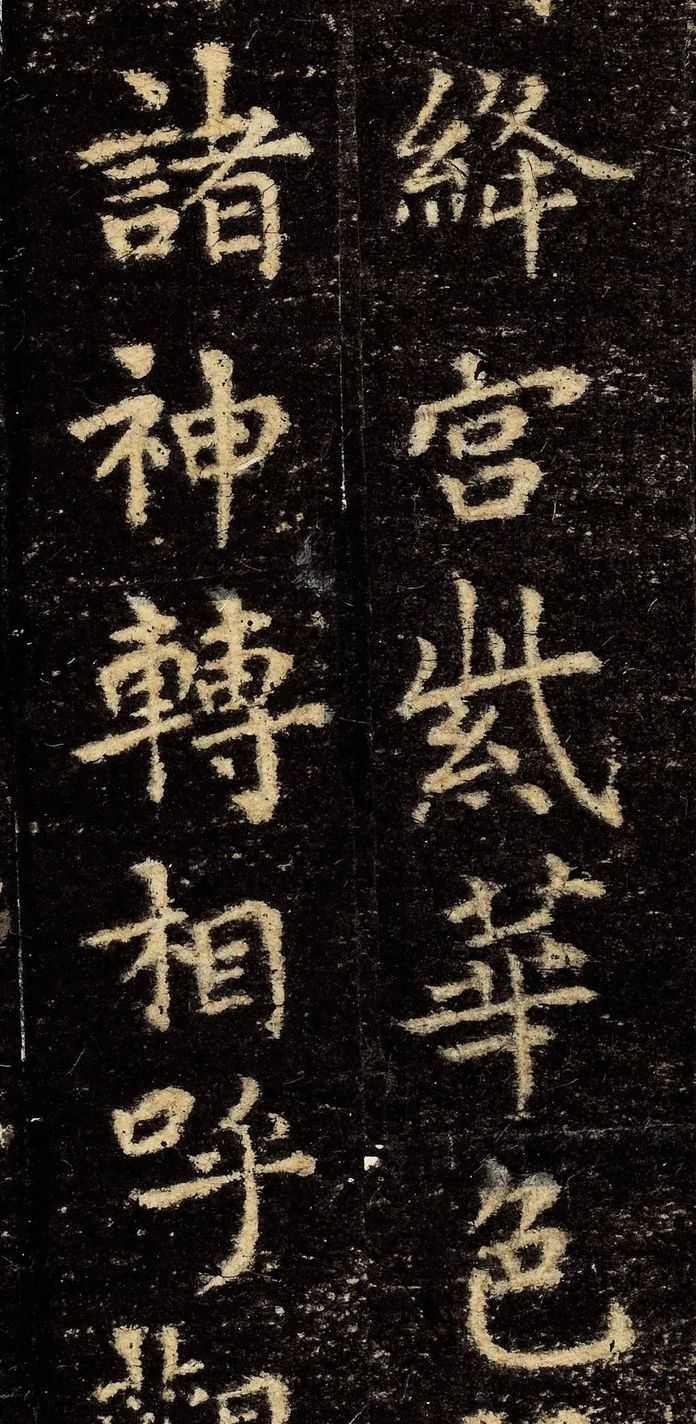 絳宮紫華色
諸神轉相呼